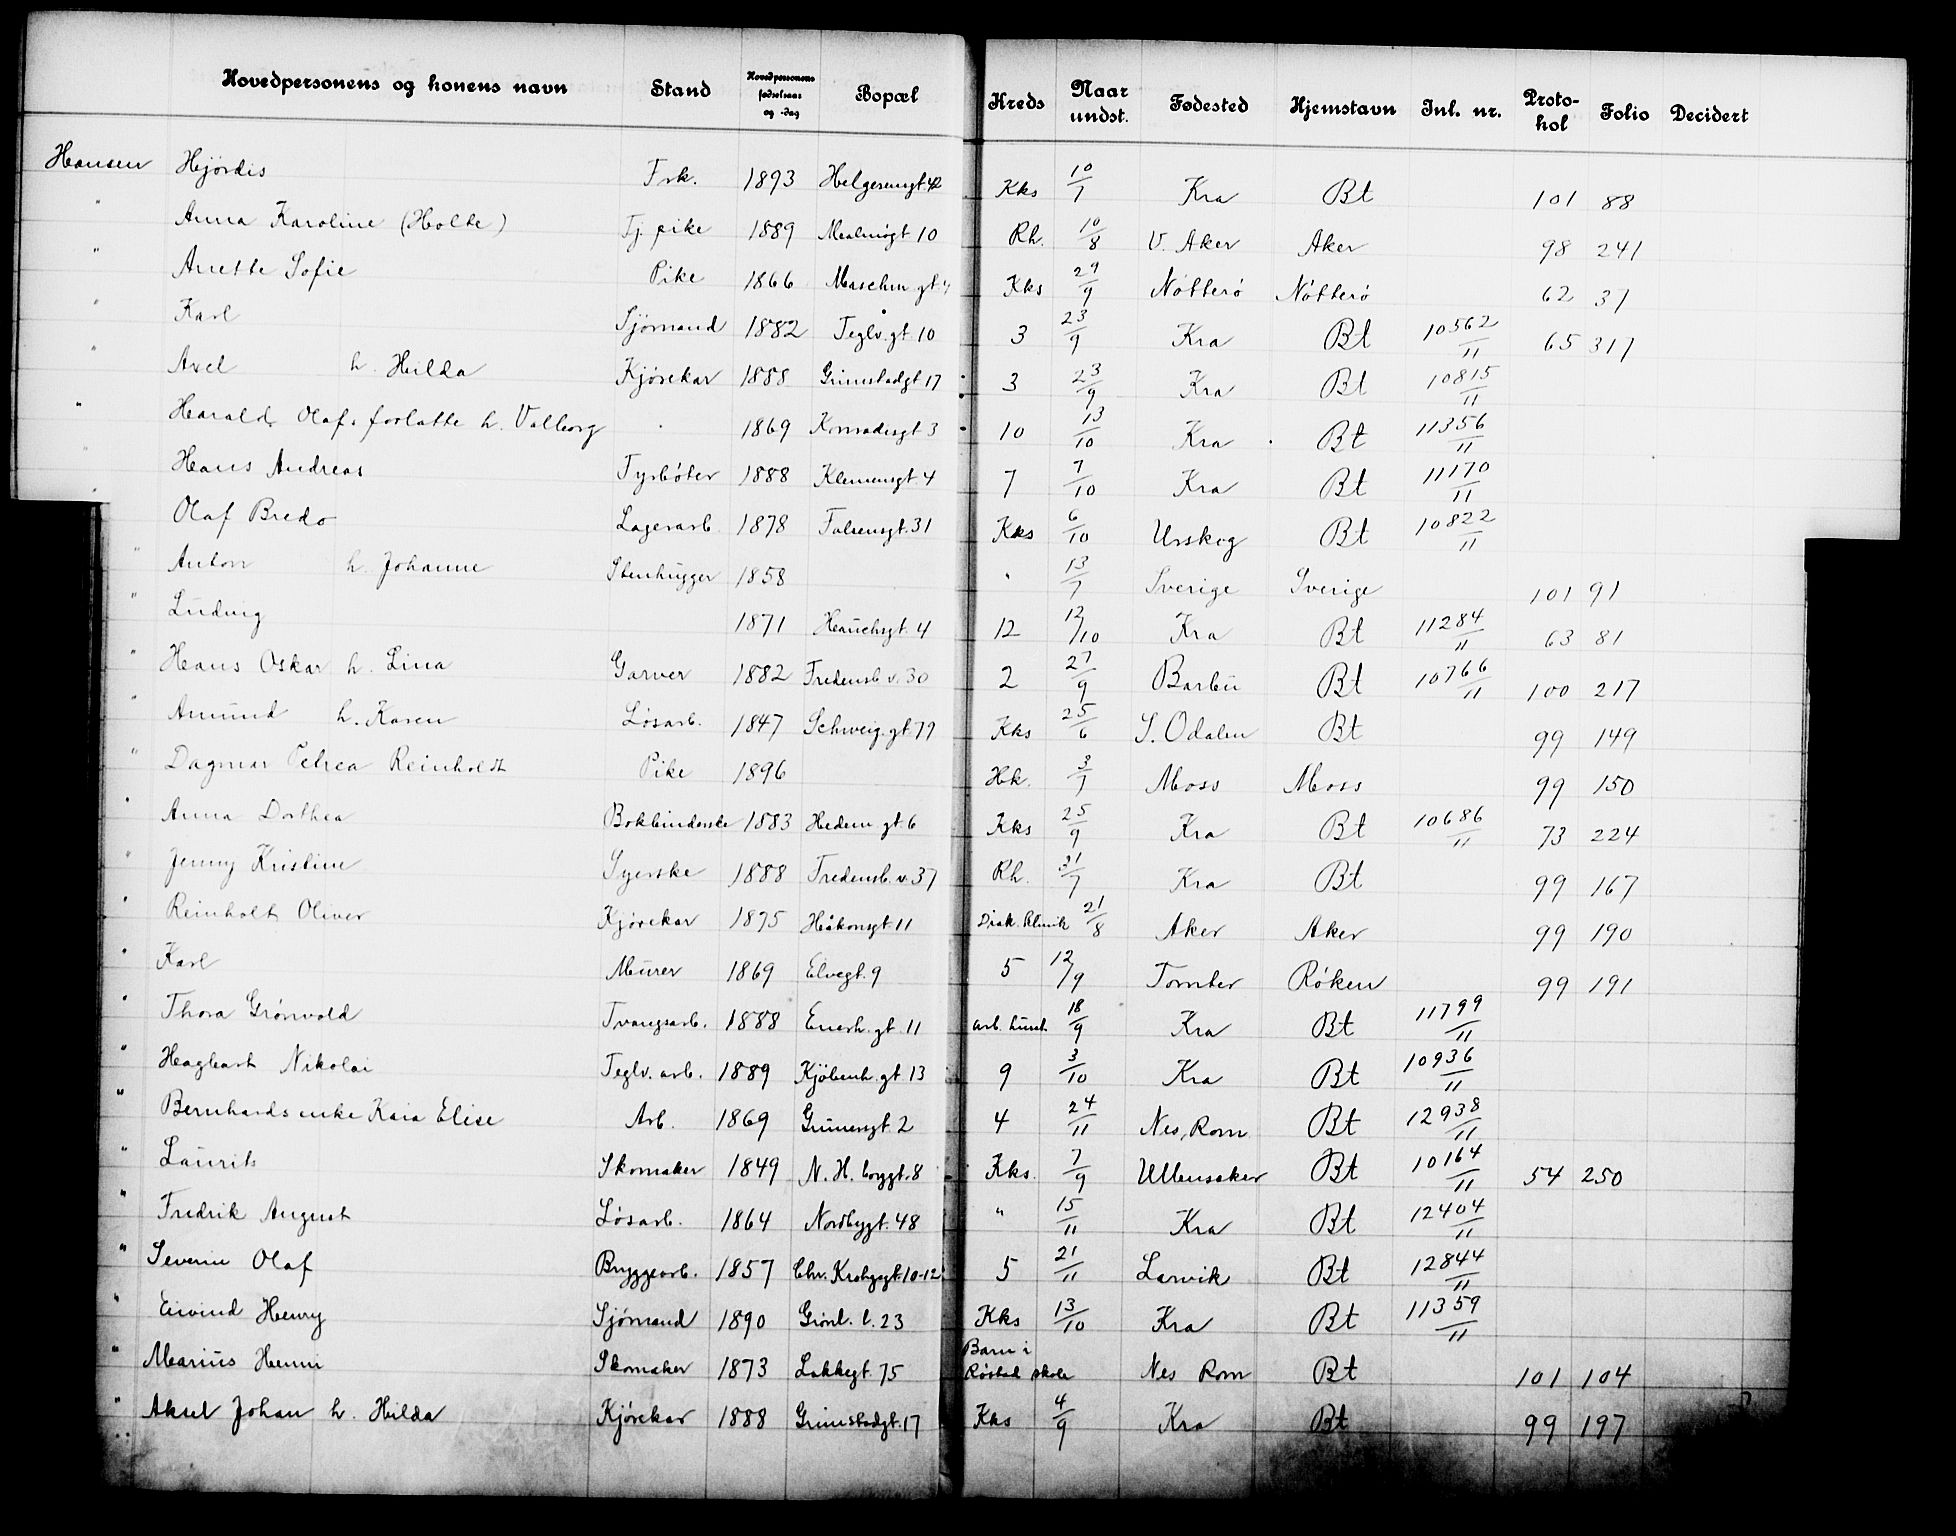 Hovedpersonens og konens navn Stand Hovedpersonens fødselsaar og -dag Bopæl Kreds Naar undst. Fødested Hjemstavn Inl. nr. Proto-kol Folio Decidert
Hansen Hjørdis Frk. 1893 Helgesensgt. 42 Kks 10/7 Kra Bt 101 88
" Anna Karoline (Holte) Tj. pike 1889 Malmøgt 10 Rh. 10/8 V. Aker Aker 98 241
" Anette Sofie Pike 1866 Maschin. gt. Kks 29/9 Nøtterø Nøtterø 62 37
" Karl Sjømand 1882 Teglv. gt. 10 3 23/9 Kra Bt 10562/11 65 317
" Axel h. Hilda Kjørekar 1888 Grimstadgt 17 3 23/9 Kra Bt 10815/11
" Harald Olafs forlatte h. Valborg 1869 Konradisgt 3 10 13/10 Kra Bt 11356/11
" Hans Andreas Fyrbøter 1888 Klemensgt 4 7 7/10 Kra Bt 11170/11
" Olaf Bredo Lagerarb. 1878 Falsensgt. 31 Kks 6/10 Urskog Bt 10822/11
" Anton h. Johanne Stenhugger 1858 " 13/7 Sverige Sverige 101 91
" Ludvig 1871 Hauchsgt. 4 12 12/10 Kra Bt 11284/11 63 81
" Hans Oskar h. Lina Garver 1882 Fredensb. v. 30 2 27/9 Barbu Bt 10766/11 100 217
" Amund h. Karen Løsarb. 1847 Schweig. gt. 79 Kks 25/6 S. Odalen Bt 99 149
" Dagmar Petrea Reinholdt Pike 1896 Hk. 3/7 Moss Moss 99 150
" Anna Dorthea Bokbinderske 1883 Hedem. gt. 6 Kks 25/9 Kra Bt 10686/11 73 224
" Jenny Kristine Syerske 1888 Fredensb. v. 37 Rh. 31/7 Kra Bt 99 167
" Reinholt Oliver Kjørekar 1875 Håkonsgt. 11 Diak. klinik 21/8 Aker Aker 99 190
" Karl Murer 1869 Elvegt. 9 5 12/9 Tomter Røken 99 191
" Thora Grønvold Tvangsarb. 1888 Enerh. gt. 11 arb. hust. 18/9 Kra Bt 11799/11
" Hagbart Nikolai Teglv. arb. 1889 Kjøbenh. gt. 13 9 3/10 Kra Bt 10936/11
" Bernhards enke Kaia Elise Arb. 1869 Grünersgt. 2 4 24/11 Nes, Rom. Bt 12938/11
" Laurits Skomaker 1849 N. H. borggt. 8 Kks. 7/9 Ullensaker Bt 10164/11 54 250
" Fredrik August Løsarb. 1864 Nordbygt. 48 " 15/11 Kra Bt 12404/11
" Severin Olaf Bryggearb. 1857 Chr. Krohgsgt. 10-12 5 21/11 Larvik Bt 12844/11
" Eivind Henry Sjømand 1890 Grønl. l. 23 Kks 13/10 Kra Bt 11359/11
" Marius Henni Skomaker 1873 Lakkegt. 75 Barn i Røstad skole Nes Rom Bt 101 104
" Aksel Johan h. Hilda Kjørekar 1888 Grimstadgt. 17 Kks 4/9 Kra Bt 99 197